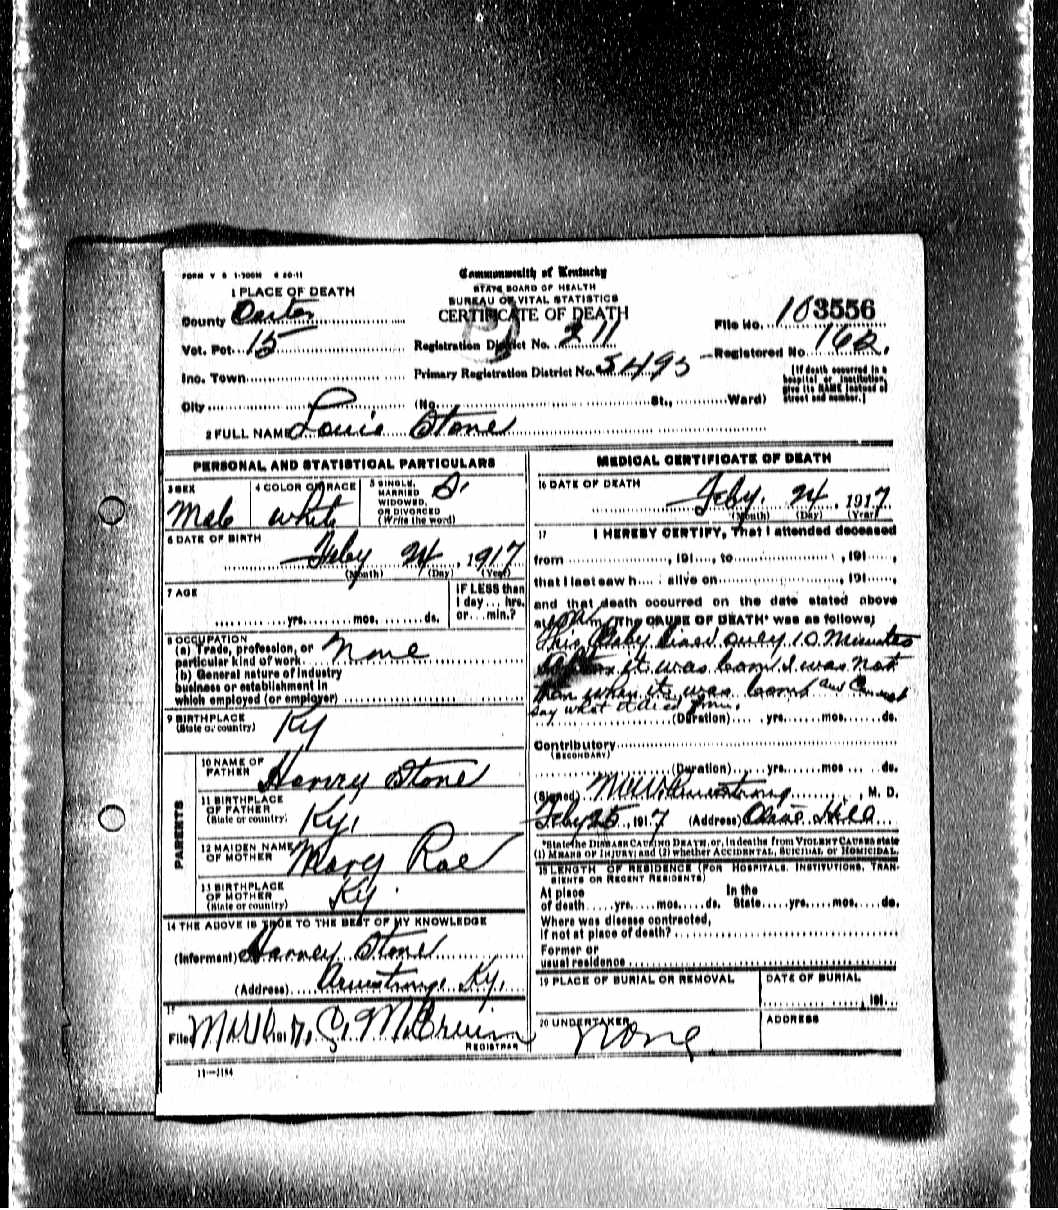 FORM V S 1-700M 6 20-11
Commonwealth of Kentucky
STATE BOARD OF HEALTH
BUREAU OF VITAL STATISTICS
CERTIFICATE OF DEATH
1 PLACE OF DEATH
County Carter
Vot. Pct. 15
Inc. Town
City
Registration District No. 211
Primary Registration District No. 5495
(No. St., Ward)
File No. 103556
Registered No. 162.
[If death occurred in a
hospital or institution,
give its NAME instead of
street and number.]
2 FULL NAME Louis Stone
PERSONAL AND STATISTICAL PARTICULARS
3 SEX
Male
4 COLOR OR RACE
White
5 SINGLE,
MARRIED
WIDOWED,
OR DIVORCED
(Write the word)
S.
6 DATE OF BIRTH
Feby 24, 1917
(Month) (Day) (Year)
7 AGE
yrs. mos. ds.
IF LESS than
1 day ... hrs.
or ... min.?
8 OCCUPATION
(a) Trade, profession, or
particular kind of work None
(b) General nature of industry
business or establishment in
which employed (or employer)
9 BIRTHPLACE
(State or country)
Ky
PARENTS
10 NAME OF
FATHER
Harvey Stone
11 BIRTHPLACE
OF FATHER
(State or country)
Ky.
12 MAIDEN NAME
OF MOTHER
Mary Roe
13 BIRTHPLACE
OF MOTHER
(State or country)
Ky.
14 THE ABOVE IS TRUE TO THE BEST OF MY KNOWLEDGE
(Informant) Harvey Stone
(Address) Armstrong, Ky.
15
Filed 191
REGISTRAR
11-3184
MEDICAL CERTIFICATE OF DEATH
16 DATE OF DEATH
Feby. 24, 1917
(Month) (Day) (Year)
17 I HEREBY CERTIFY, That I attended deceased
from , 191 , to , 191 ,
that I last saw h alive on , 191 ,
and that death occurred on the date stated above
at m. The CAUSE OF DEATH* was as follows:
This Baby lived only 10 Minutes
after it was born I was not
when it was born and
say what it died from.
(Duration) yrs. mos. ds.
Contributory
(SECONDARY)
(Duration) yrs. mos. ds.
(Signed) Armstrong, M. D.
Feby 25, 1917 (Address) Olive Hill
*State the DISEASE CAUSING DEATH, or, in deaths from VIOLENT CAUSES state
(1) MEANS OF INJURY; and (2) whether ACCIDENTAL, SUICIDAL OR HOMICIDAL.
18 LENGTH OF RESIDENCE (FOR HOSPITALS, INSTITUTIONS, TRAN-
SIENTS OR RECENT RESIDENTS)
At place
of death yrs. mos. ds.
In the
State yrs. mos. ds.
Where was disease contracted,
if not at place of death?
Former or
usual residence
19 PLACE OF BURIAL OR REMOVAL
DATE OF BURIAL
, 191
20 UNDERTAKER
None
ADDRESS